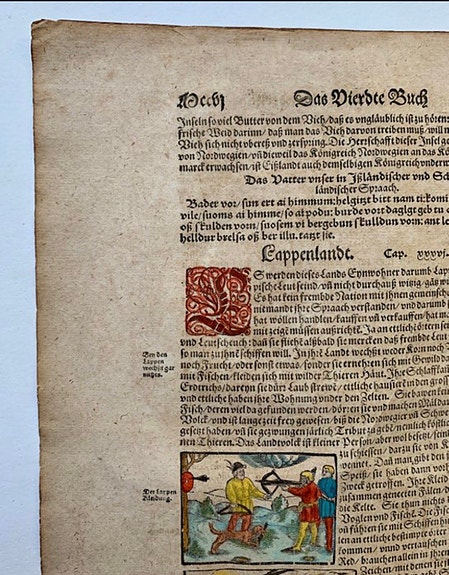 Mccvj Das Vierdte Buch
Inseln so viel Butter von dem Vieh/ daß es unglåublich ist zu hören:
frische Weid darinn/ daß man das Vieh darvon treiben muß/ will m
Vieh sich nicht überetz und zerspring. Die Herrschafft dieser Insel ge
von Nordwegien/ uñ dieweil das Königreich Nordwegien an das Kö
marck erwachsen/ ist Eißlandt auch demselbigen Königreich underw
Das Vatter unser in Ißländischer und Sch
ländischer Spraach.
Bader vor/ sun ert ai himmum: helgitzt bitt nam ti: komi
vile/ suoms ai himme/ so ai podu: burde vort daglgt geb tu
oß skulden vorn/ suosem vi bergebun skulldun vorn: ant le
helldur brelsa oß ber illu. tatzt sie.
Lappenlandt. Cap. xxxvj.
ES werden dieses Lands Eynwohner darumb Lap
pische Leut seind/ uñ nicht durchauß witzig/ gåe
Es hat kein frembde Nation mit ihnen gemeinsch
niemandt ihr Spraach verstanden/ und darumb
hat wöllen handlen/ kauffen uñ verkauffen/ hat m
mit zeigē müssen außrichtē. Ja an etlichē örtern se
und Leutscheuch: daß sie flieht alßbald sie mercken daß frembde Leut
so man zu ihnē schiffen will. In ihrē Landt wechßt weder Korn noch
noch Frucht/ oder sonst etwas/ sonder sie ernehren sich mit Gewild
mit Fischen/ kleiden sich mit wilder Thieren Håut. Ihr Schlaffkam
Erdtrichs/ dareyn sie dürr Laub strewē/ etliche hausen in den gross
und etliche haben ihre Wohnung under den Zelten. Sie haben ein
Fisch/ deren viel da gefunden werden/ dörren sie und machen Mål da
Volck/ und ist lange zeit frey gewesen/ biß die Nortwegier uñ Schwe
gesetzt haben/ uñ sie gezwungen jårlich Tribut zu gebē/ nemlich köstliche
nen Thieren. Das Landtvolck ist kleiner Person/ aber wol besetzt/ sein
zu schiessen/ darzu sie von K
wonnet. Dañ man gibt den
Speiß/ sie haben dann vorh
Zweck getroffen. Ihre Kleid
zusammen geneeten Fålen/ d
die Kelte. Sie thun nichts
Voglen und Fischē. Die Fisch
uñ führen sie mit Schiffen hin
len an etliche bestimpte örter
kommen/ unnd vertauschen
Red/ brauchen allein in ihren
Zeichen/ mit denen sie
Bey den
Lappen
wechßt gar
nichts.
Der Lappen
Båndung.